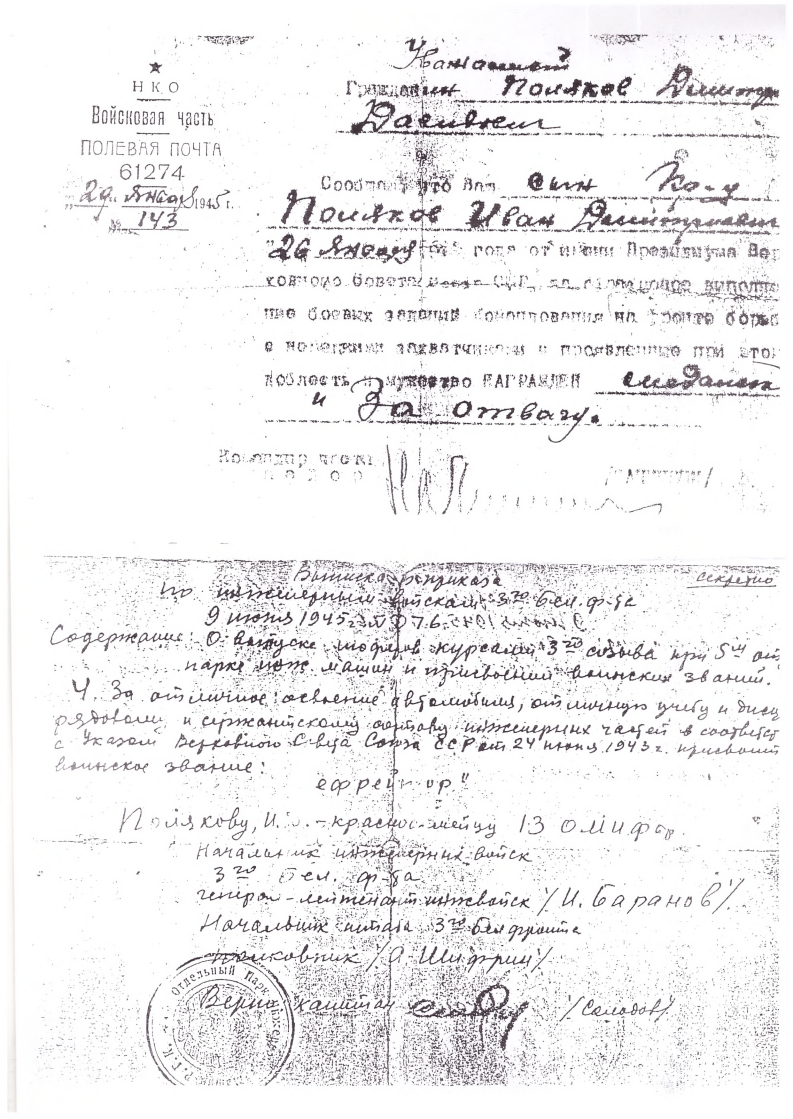 НКО
Войсковая часть
ПОЛЕВАЯ ПОЧТА
61274
"29" Января 1945 г.
№ 143
Уважаемый
Гражданин Поляков Дмитри
Сообщаю что Ваш сын Кр-ц
Поляков Иван Дмитриевич
26 Января 1945 года от имени Президиума Вер
ховного Совета Союза ССР, за образцовое выполне
ние боевых заданий Командования на фронте борьб
с немецкими захватчиками и проявленные при этом
доблесть и мужество НАГРАЖДЕН медалью
" За отвагу.
Командир части
майор
Выписка из приказа
секретно
по инженерным войскам 3го Бел. ф-та
9 июня 1945 г. №076.
Содержание: О выпуске шоферов курсами 3го созыва при 5м от
парке инж. машин и присвоении воинских званий.
4. За отличное освоение автомобиля, отличную учебу и дисц
рядовому и сержантскому составу инженерных частей в соответст
с Указом Верховного Совета Союза ССР от 24 июня 1943 г. присвоит
воинское звание:
ефрейтор"
Полякову, И. - красноармейцу 13
Начальник инженерных войск
3го Бел. ф-та
генерал-лейтенант инжвойск /И. Баранов/.
Начальник штаба 3го Бел фронта
полковник /А. Шифрин/
Верно капитан /Солодов/
Отдельный Парк Инжен
Р.Г.К.